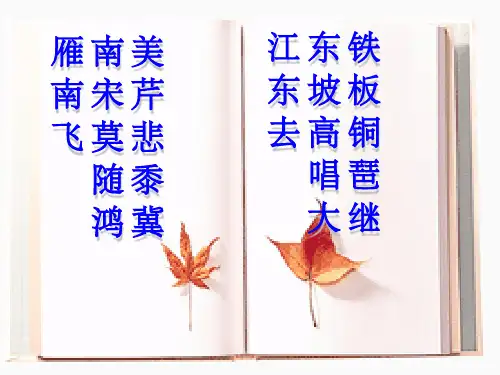 铁板铜琶继
东坡高唱大
江东去
美芹悲黍冀
南宋莫随鸿
雁南飞